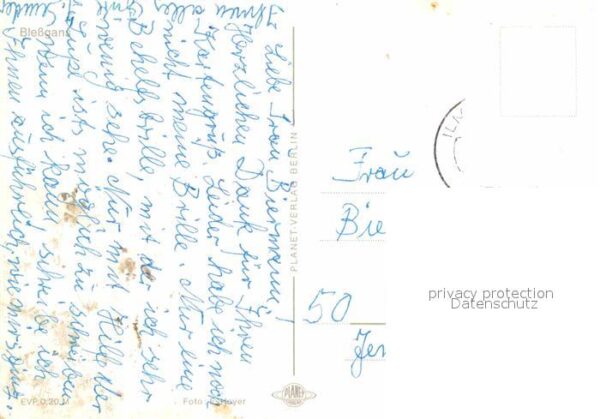 Bleßgans
Liebe Frau Biermann!
Herzlichen Dank für Ihren
Kartengruß. Leider habe ich noch
nicht meine Brille. Nur eine
Behelfsbrille, mit der ich sehr
wenig sehe. Nur mit Hilfe der
Lupe ist's möglich zu schreiben.
Wenn ich kann schreibe ich
Ihnen ausführlich, wie mir's geht.
Ihnen alles
Gute
PLANET-VERLAG BERLIN
EVP 0,20 M
Foto: Hoyer
PLANET
Frau
Bie
50
Jen
privacy protection
Datenschutz